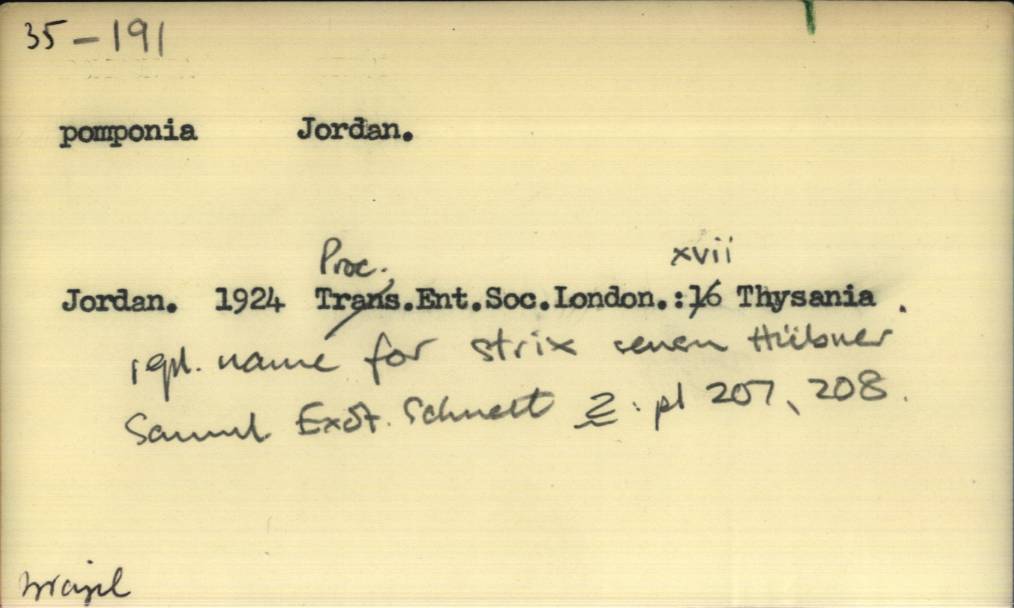 35-191
pomponia Jordan.
Proc. xvii
Jordan. 1924 Trans.Ent.Soc.London.:16 Thysania .
repl. name for strix sensu Hübner
Samml. Exot. Schmett 2: pl 207, 208.
brazil